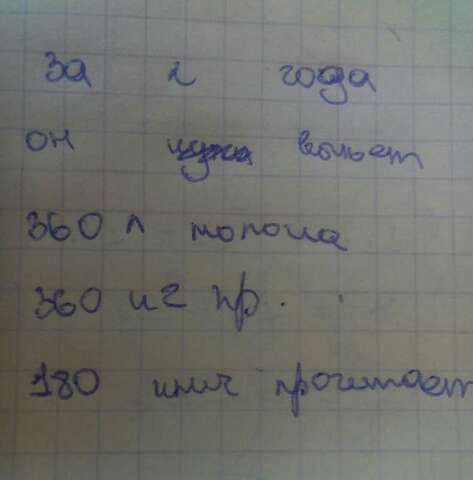 за 2 года
он выпьет
360 л молока
360 кг пр.
180 книг прочитает